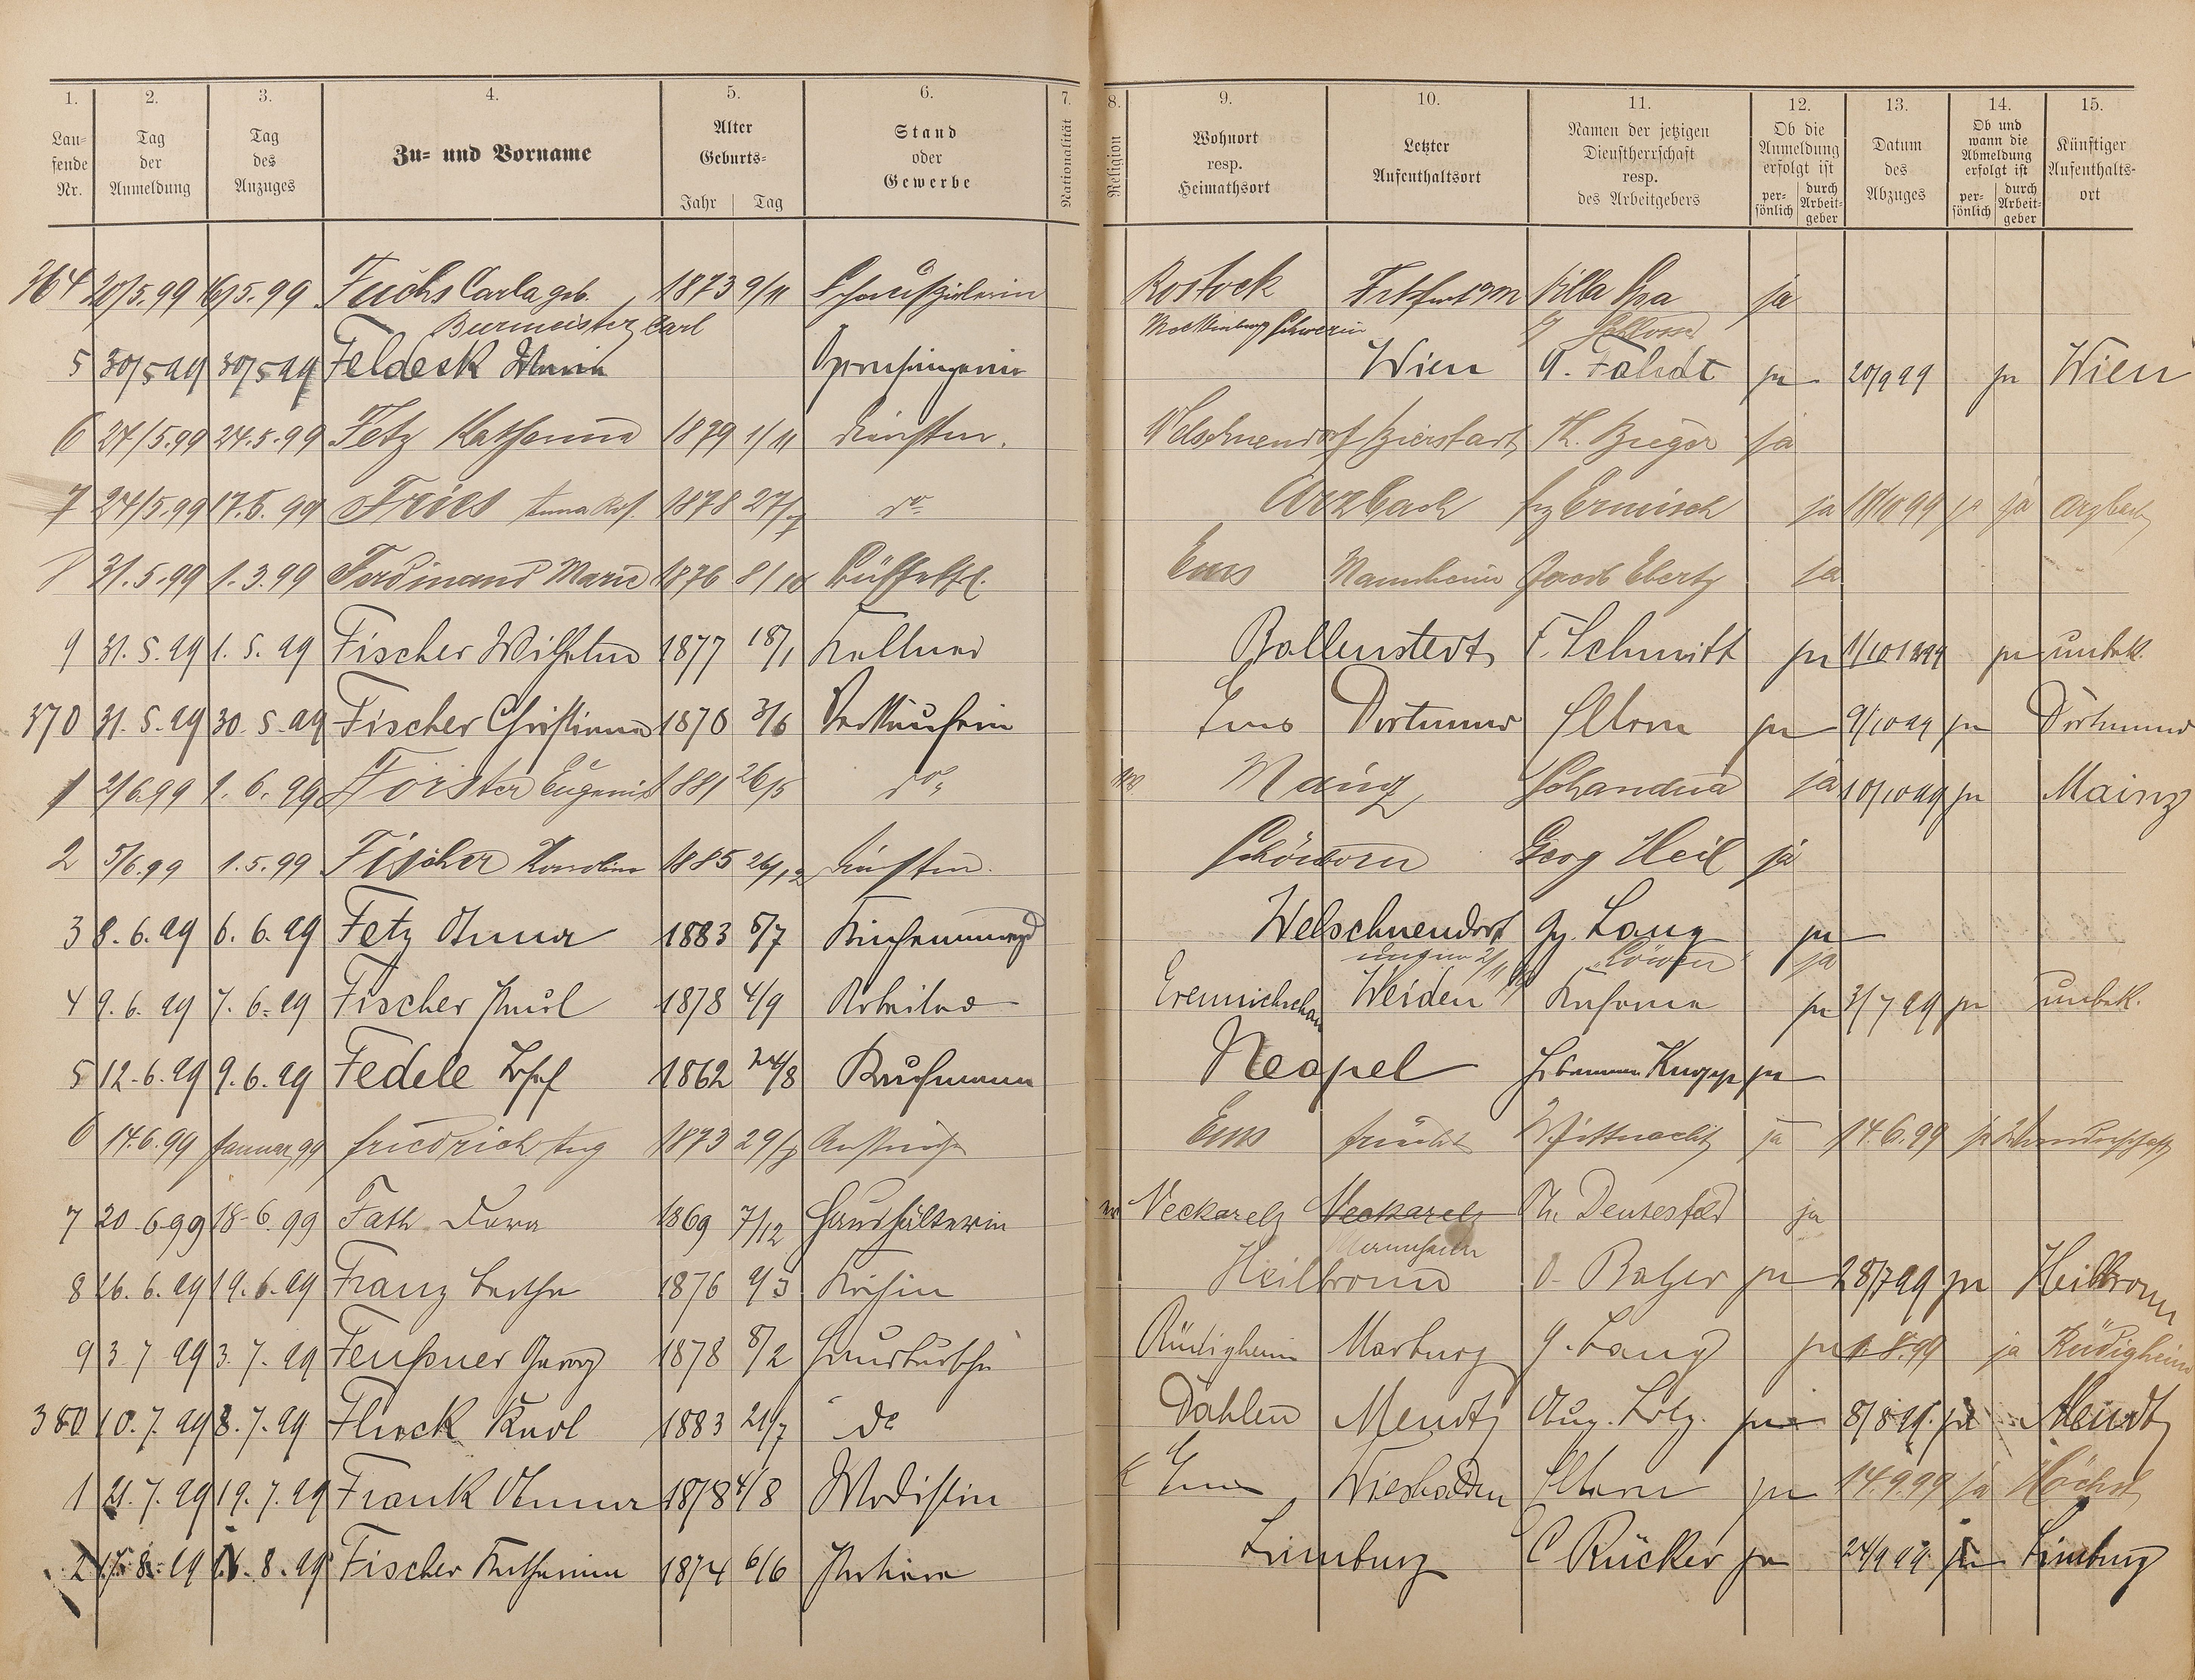 1. 2. 3. 4. 5. 6. 7. 8. 9. 10. 11. 12. 13. 14. 15.
Lau-fende Nr.
Tag der Anmeldung
Tag des Anzuges
Zu- und Vorname
Alter Geburts- Jahr Tag
Stand oder Gewerbe
Nationalität
Religion
Wohnort resp. Heimathsort
Letzter Aufenthaltsort
Namen der jetzigen Dienstherrschaft resp. des Arbeitgebers
Ob die Anmeldung erfolgt ist per-sönlich durch Arbeit-geber
Datum des Abzuges
Ob und wann die Abmeldung erfolgt ist per-sönlich durch Arbeit-geber
Künftiger Aufenthalts-ort
364 20/5.99 16/5.99 Fuchs Carla geb. 1873 9/11 Schauspielerin Rostock Villa ja
Burmeister, Carl Mecklenburg Schwerin
5 30/5 99 30/5 99 Feldeck Opernsängerin Wien ja 20/9 99 ja Wien
6 27/5.99 24.5.99 Fetz Katharina 1879 1/11 Dienstm. Welschneudorf ja
7 24/5.99 17.5.99 Fries Anna 1878 27/7 do Arzbach Ermisch ja 18/10 99 ja ja Arzbach
8 31.5.99 1.3.99 Ferdinand Marie 1876 8/10 Büffetfrl. Ems Mannheim Jacob Ebertz ja
9 31.5.99 1.5.99 Fischer Wilhelm 1877 18/1 Kellner Ballenstedt F. Schmitt ja 1/10 1899 ja unbek.
370 31.5.99 30.5.99 Fischer Christiana 1870 3/6 Verkäuferin Ems Dortmund Eltern ja 9/10 99 ja Dortmund
1 2/6.99 1.6.99 Förster Eugenie 1881 26/5 do Mainz Schandua ja 10/10 99 ja Mainz
2 5/6.99 1.5.99 Fischer Karoline 1885 26/12 Dienstm. Schönborn Georg Heil ja
3 8.6.99 6.6.99 Fetz Anna 1883 5/7 Küchenmagd Welschneudorf Gg. Lang ja
Löwen ja
4 9.6.99 7.6.99 Fischer Karl 1878 4/9 Arbeiter Weiden Kaserne ja 3/7 99 ja unbek.
5 12.6.99 9.6.99 Fedele Josef 1862 24/8 Kaufmann Neapel Johannes Knapp ja
6 14.6.99 Januar 99 Friedrich Aug 1873 29/7 Anstreicher Ems Frücht Wittnacht ja 14.6.99 ja Wanderschaft
7 20.6.99 18.6.99 Fath Dora 1869 7/12 Haushälterin Neckarelz Neckarelz Ph. Deutesfeld ja
Mannheim
8 26.6.99 19.6.99 Franz Bertha 1876 9/3 Köchin Heilbronn O. Balzer ja 28/7 99 ja Heilbronn
9 3.7.99 3.7.99 Feußner Georg 1878 8/2 Hausbursche Rüdigheim Marburg G. Lang ja 1.8.99 ja Rüdigheim
380 10.7.99 8.7.99 Flock Karl 1883 21/7 do Dahlen Meudt Aug. Lotz. ja 8/8 99. ja Meudt
1 21.7.99 19.7.99 Frank Anna 1878 4/8 Modistin K Ems Wiesbaden Eltern ja 14.9.99 ja Höchst
2 17.8.99 16.8.99 Fischer Katharina 1874 6/6 Limburg C Rücker ja 24/9 99. ja Limburg